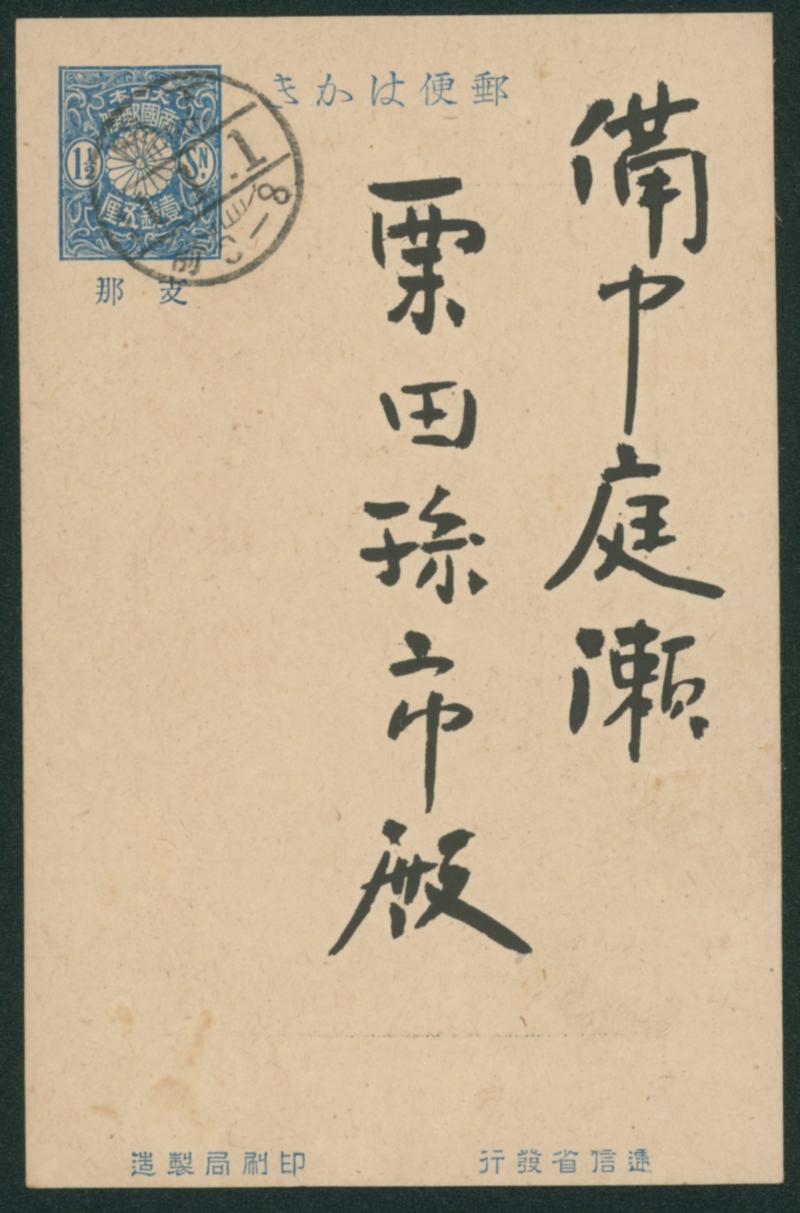 郵便はかき
大日本
帝國郵便
1½
Sn.
壹錢五厘
支那
.1
前 0-8
備中庭瀬
栗田孫市殿
逓信省發行
印刷局製造